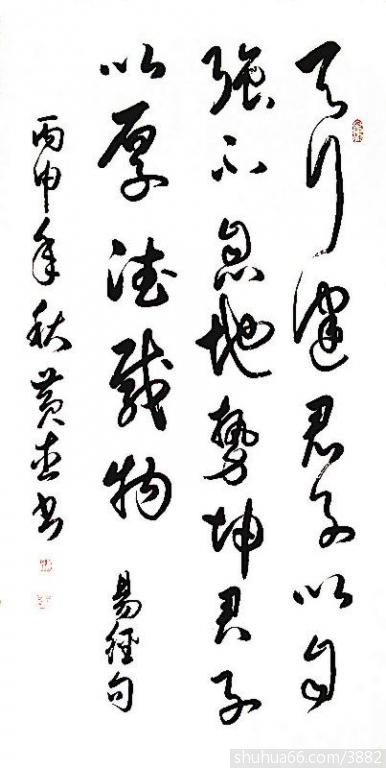 天行健君子以自
强不息地勢坤君子
以厚德載物 易經句
丙申年秋黄书
shuhua66.com/3882